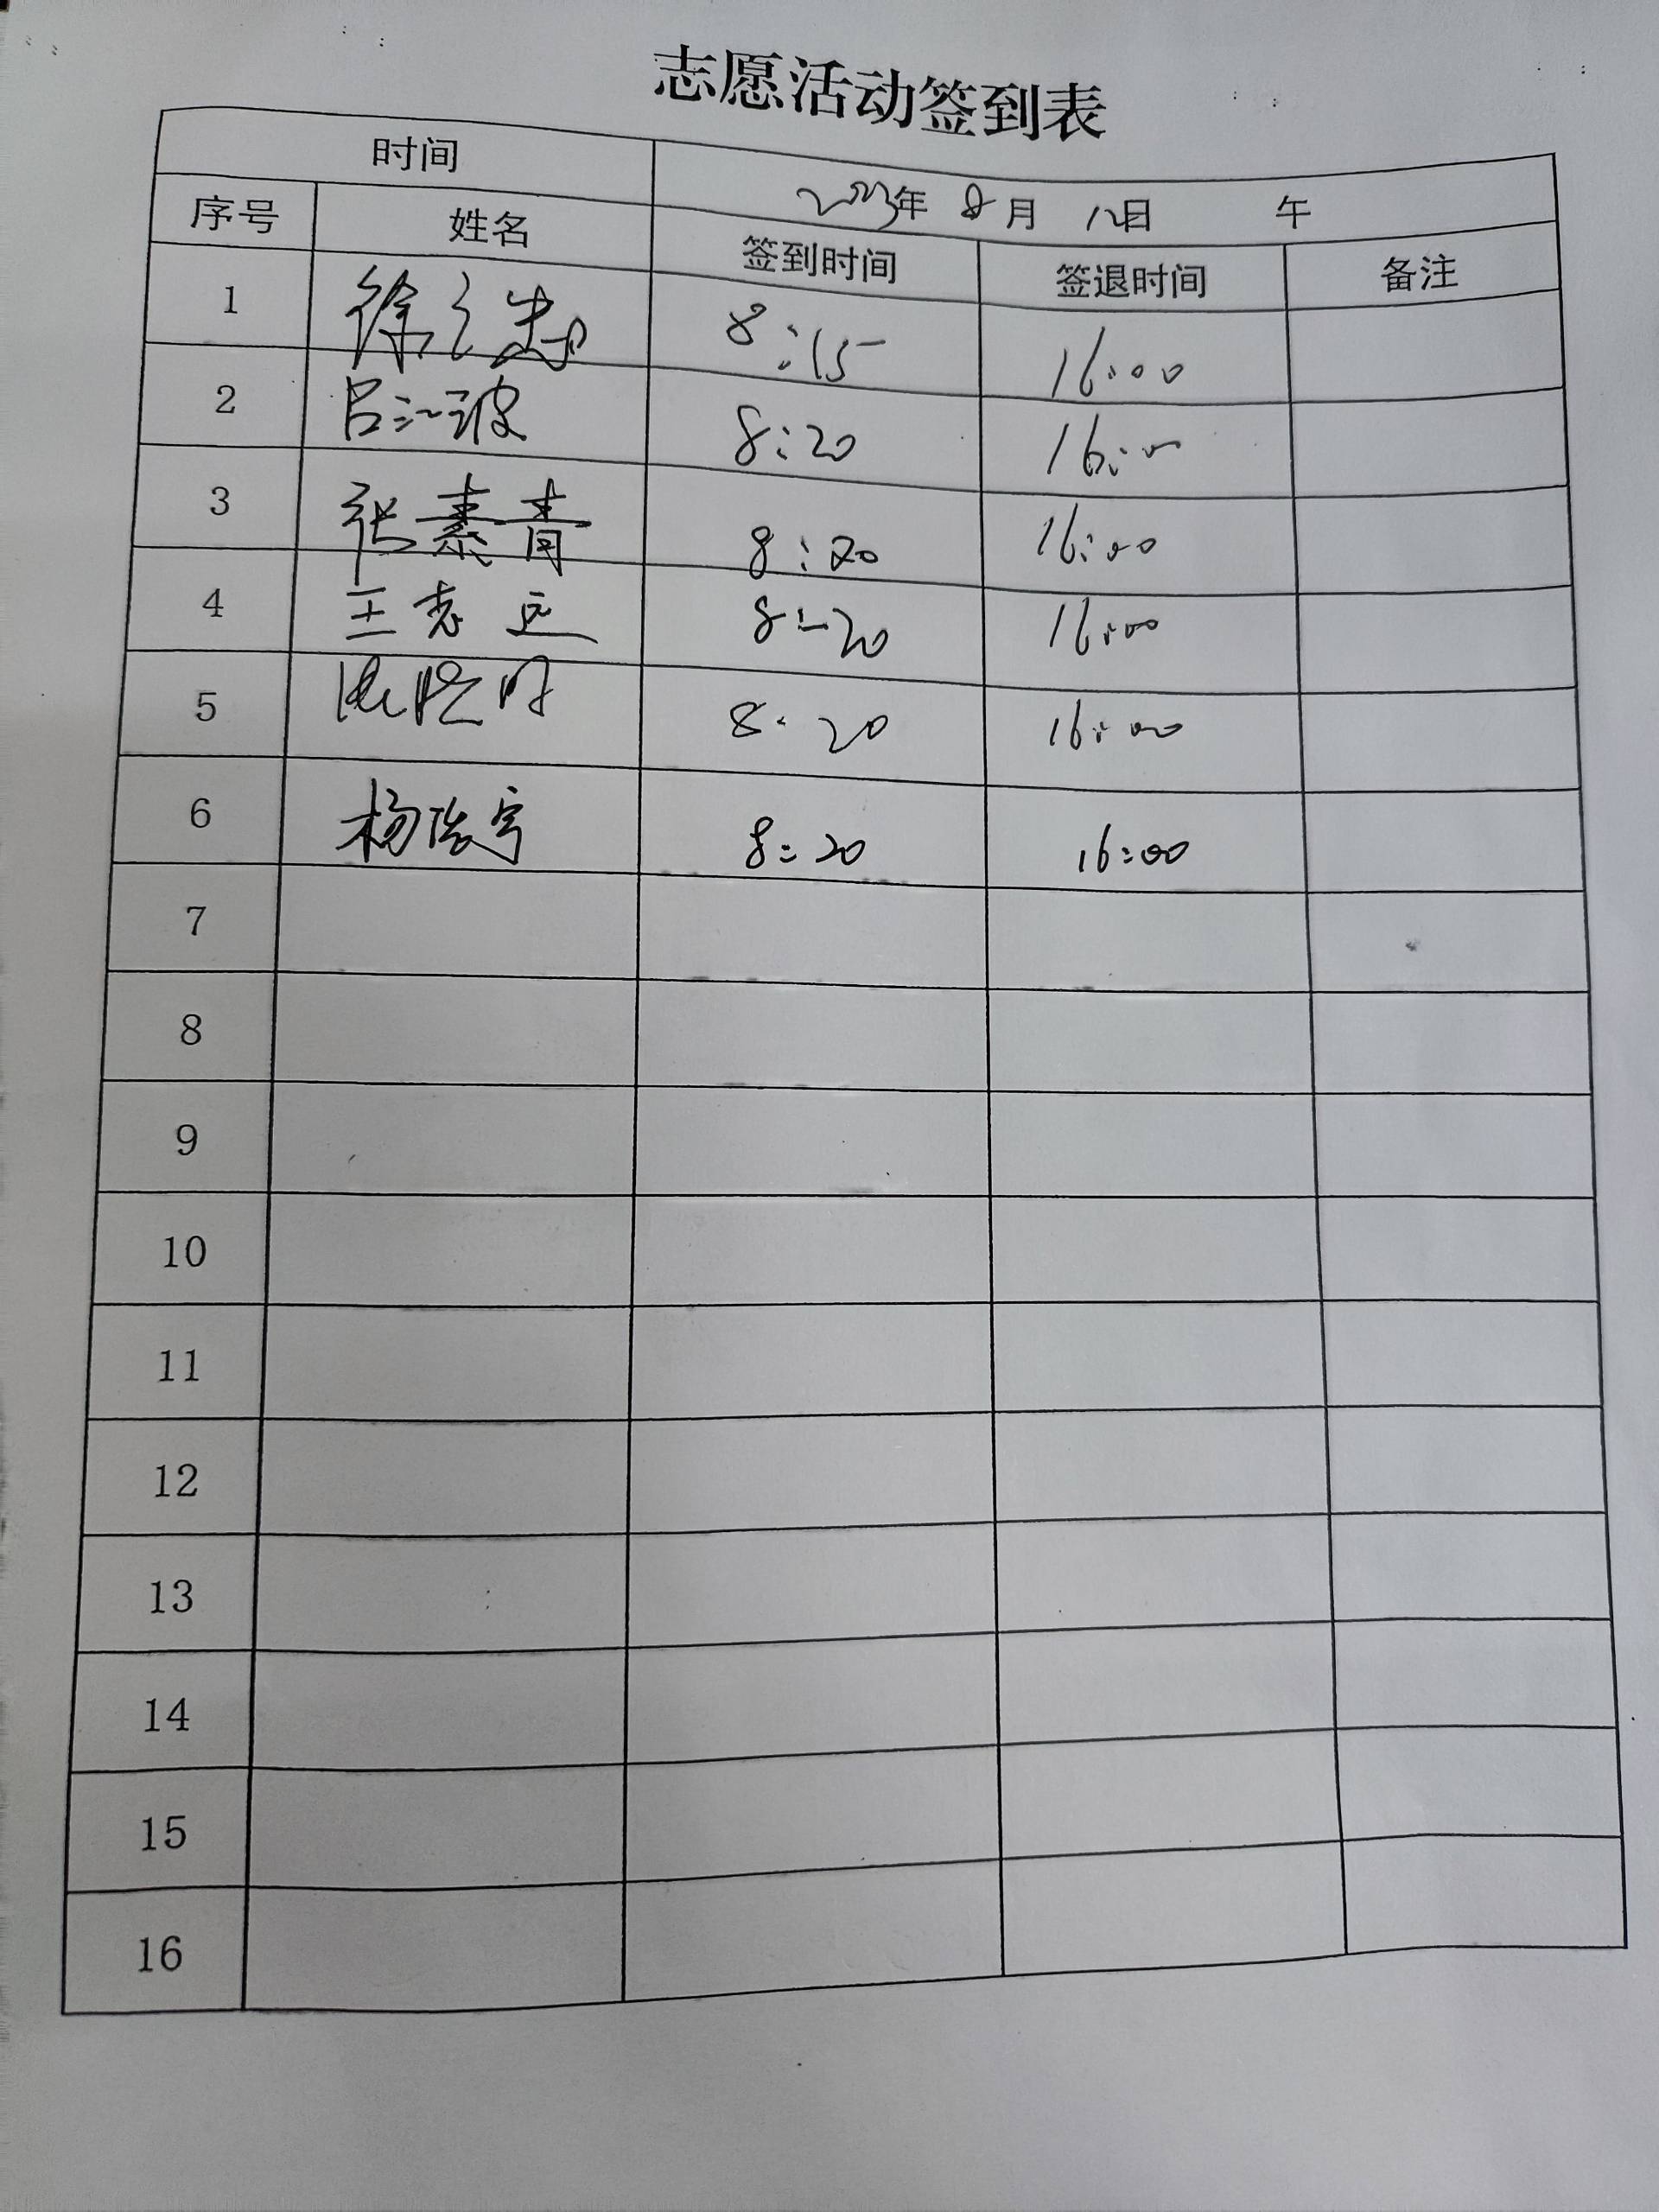 志愿活动签到表
时间 2023年 8月 12日 午
序号 姓名 签到时间 签退时间 备注
1 徐 8:15 16:00
2 吕江波 8:20 16:00
3 张素青 8:20 16:00
4 王志远 8:20 16:00
5 8:20 16:00
6 杨浩宇 8:20 16:00
7
8
9
10
11
12
13
14
15
16